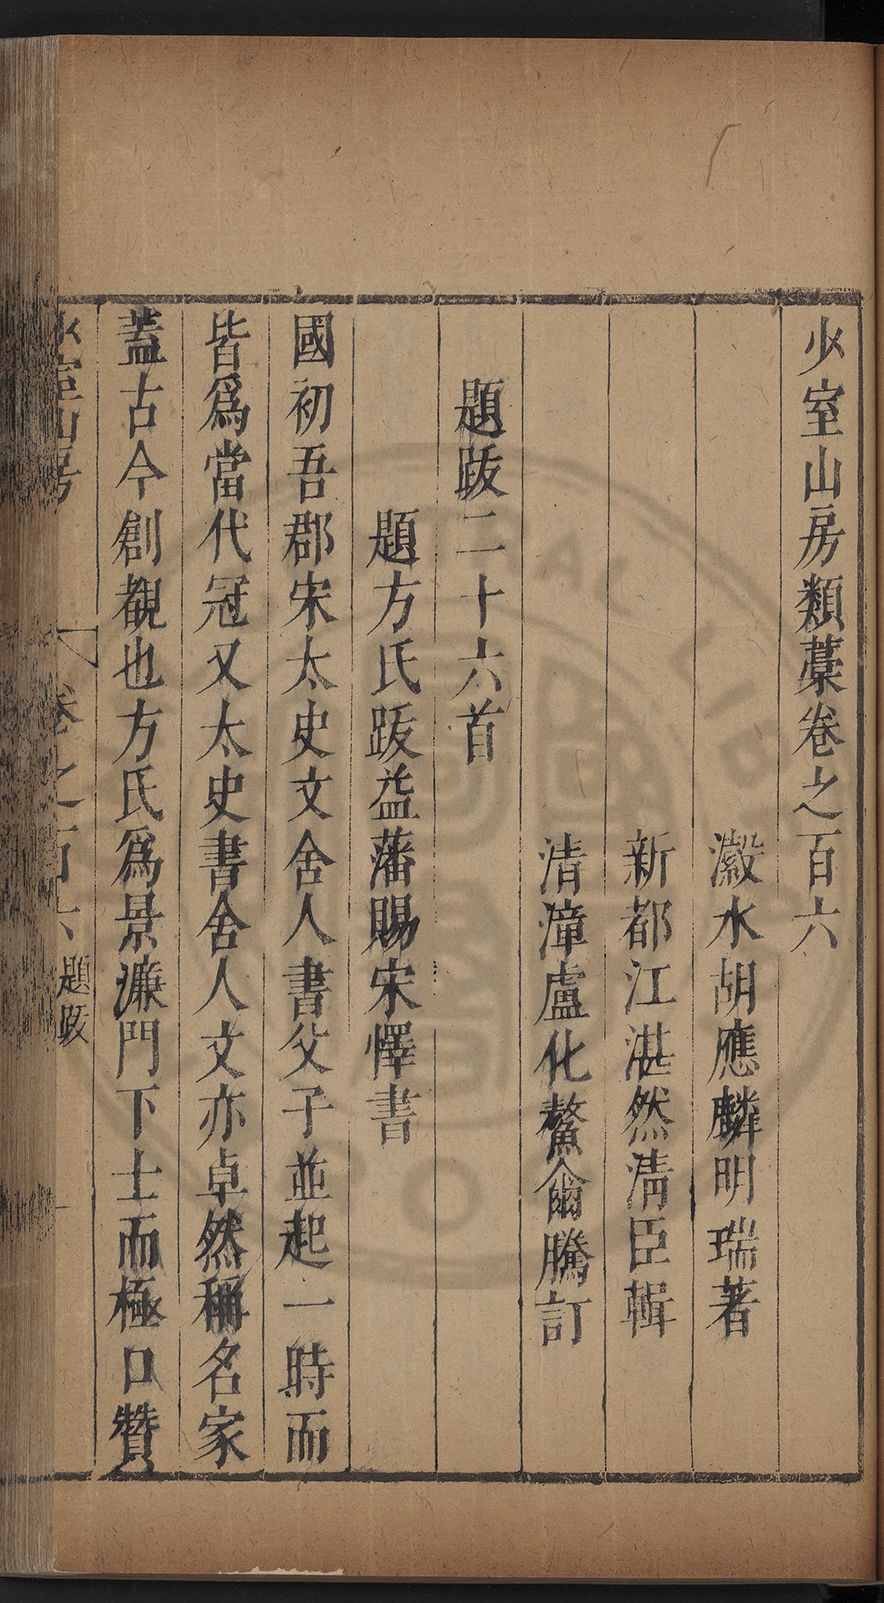 少室山房類藁卷之百六
瀫水胡應麟明瑞著
新都江湛然淸臣輯
清漳盧化鰲爾騰訂
題䟦二十六首
題方氏䟦益藩賜宋懌書
國初吾郡宋太史文舍人書父子並起一時而
皆爲當代冠又太史書舍人文亦卓然稱名家
蓋古今創覩也方氏爲景濂門下士而極口贊
少室山房 卷之百六 題䟦